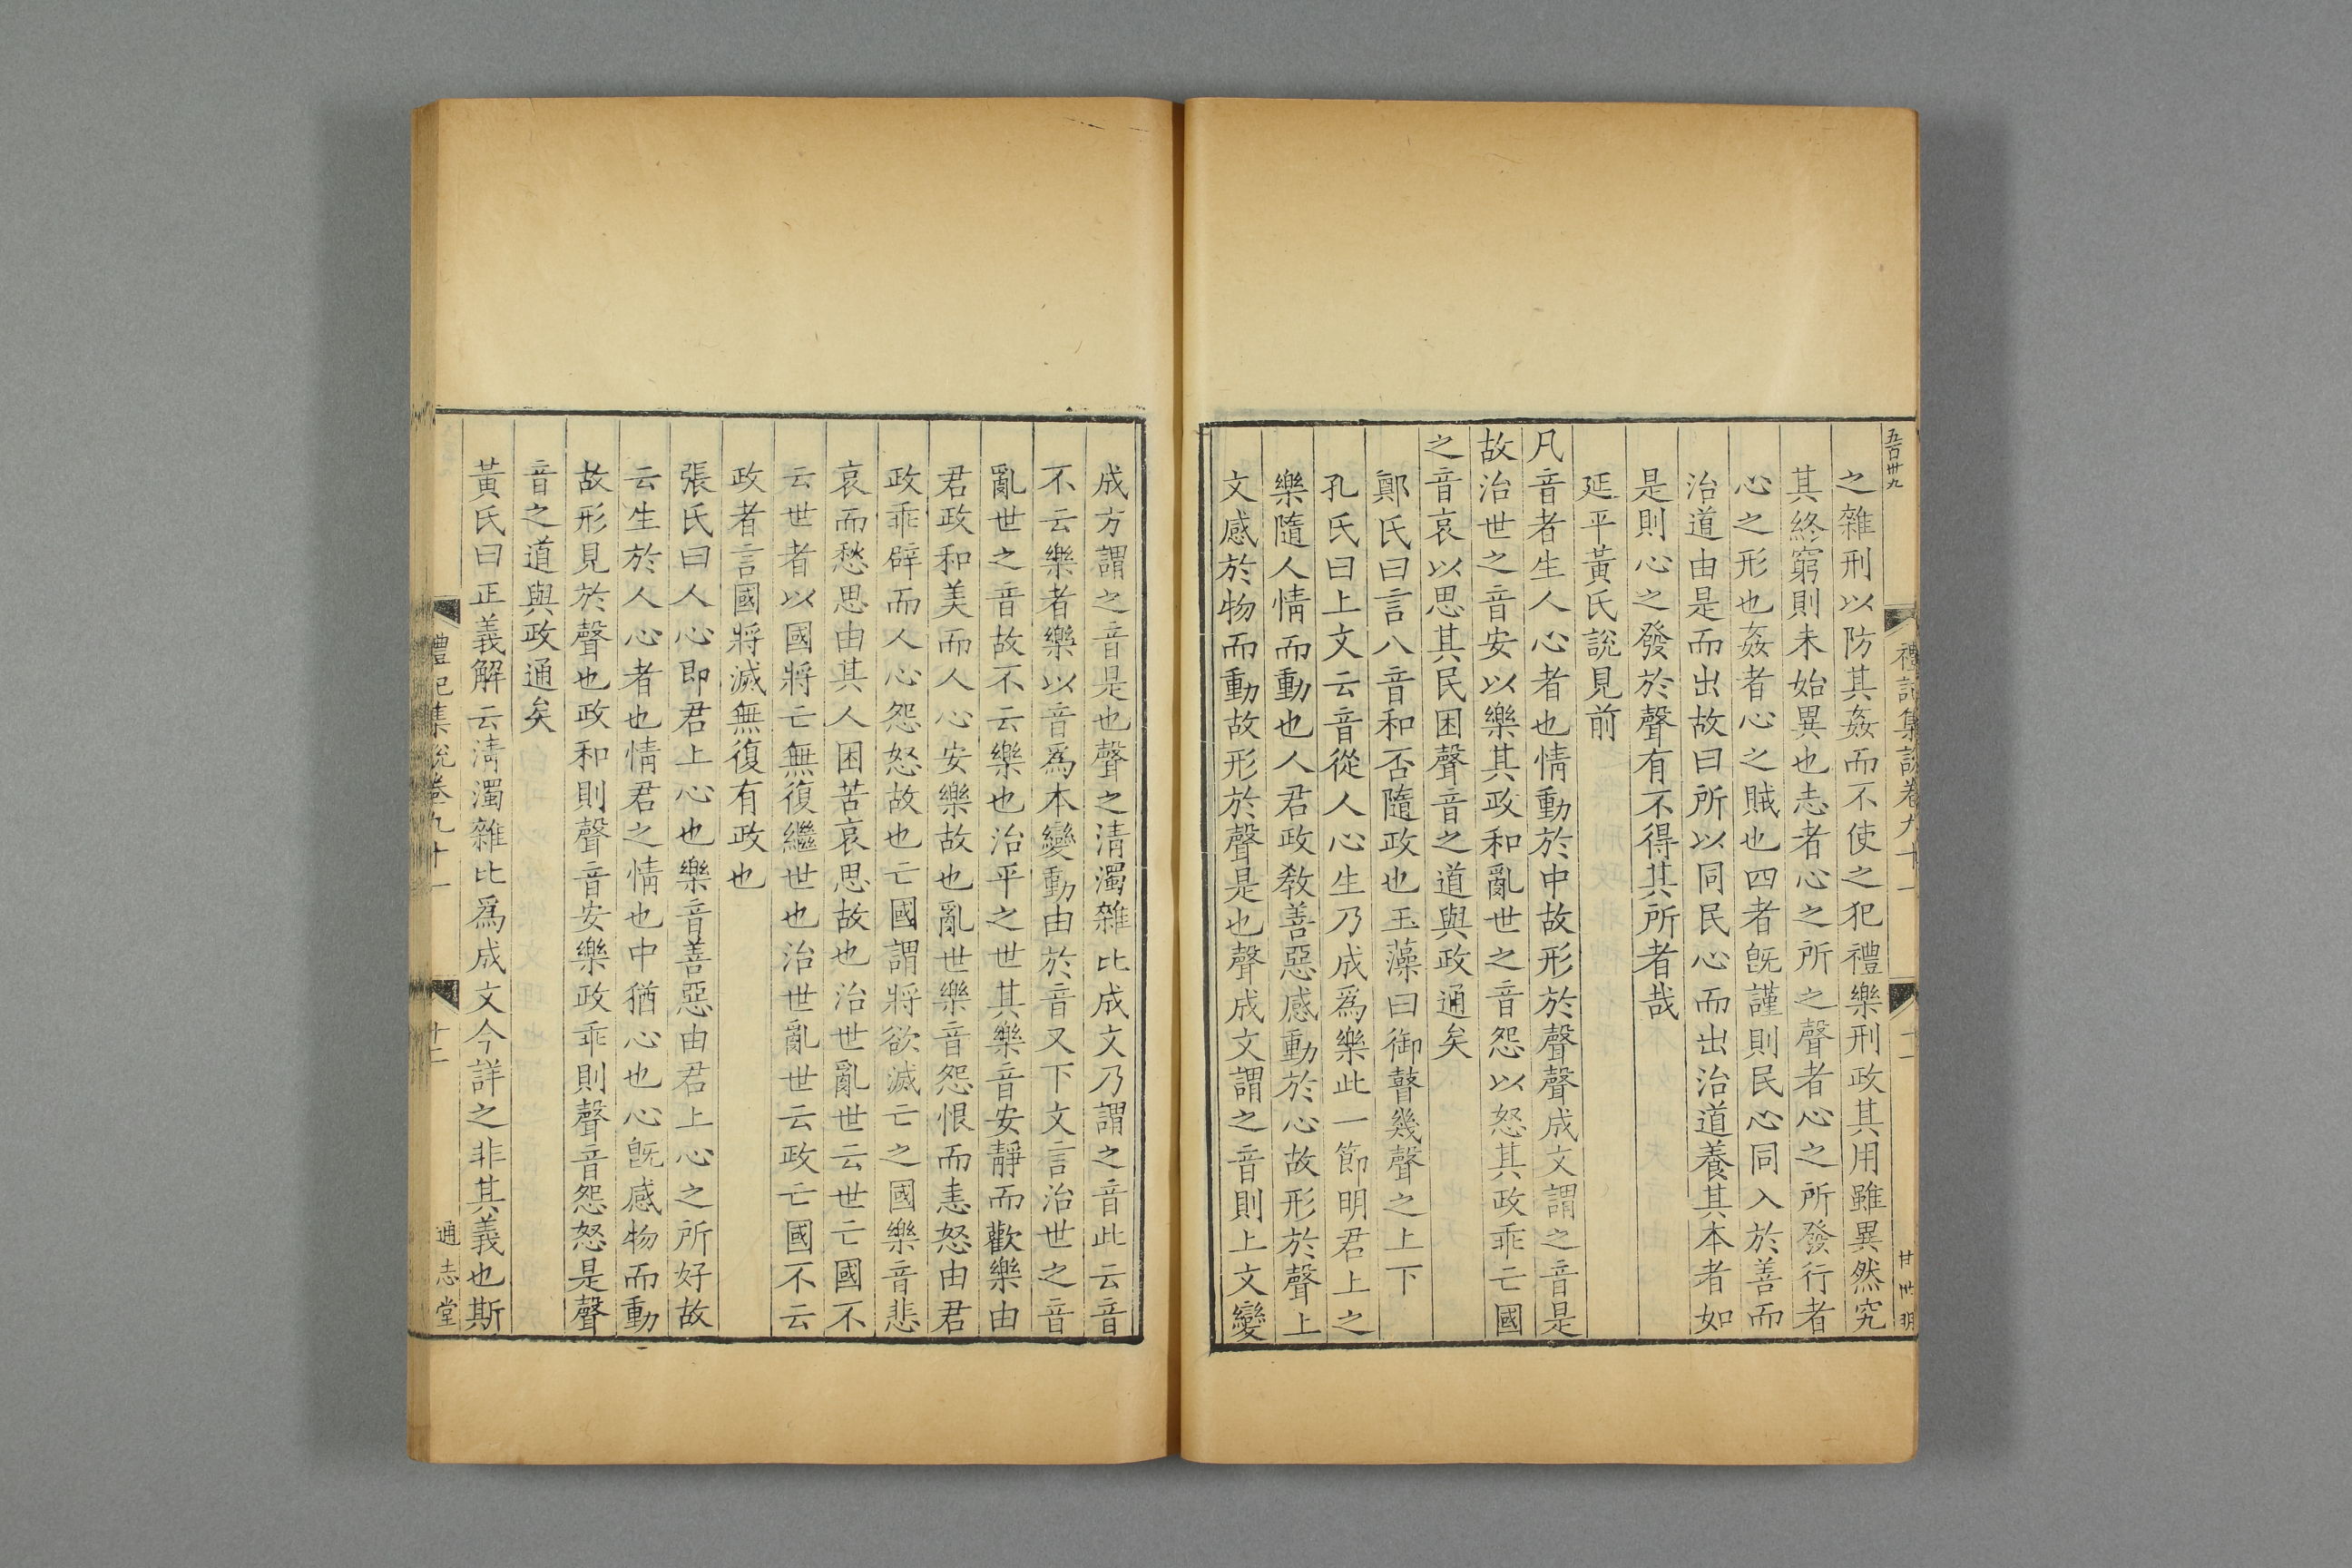 五百卅九
禮記集說卷九十一
十一
甘世明
之雜刑以防其姦而不使之犯禮樂刑政其用雖異然究
其終窮則未始異也志者心之所之聲者心之所發行者
心之形也姦者心之賊也四者旣謹則民心同入於善而
治道由是而出故曰所以同民心而出治道養其本者如
是則心之發於聲有不得其所者哉
延平黃氏說見前
凡音者生人心者也情動於中故形於聲聲成文謂之音是
故治世之音安以樂其政和亂世之音怨以怒其政乖亡國
之音哀以思其民困聲音之道與政通矣
鄭氏曰言八音和否隨政也玉藻曰御瞽幾聲之上下
孔氏曰上文云音從人心生乃成爲樂此一節明君上之
樂隨人情而動也人君政敎善惡感動於心故形於聲上
文感於物而動故形於聲是也聲成文謂之音則上文變
成方謂之音是也聲之淸濁雜比成文乃謂之音此云音
不云樂者樂以音爲本變動由於音又下文言治世之音
亂世之音故不云樂也治平之世其樂音安靜而歡樂由
君政和美而人心安樂故也亂世樂音怨恨而恚怒由君
政乖辟而人心怨怒故也亡國謂將欲滅亡之國樂音悲
哀而愁思由其人困苦哀思故也治世亂世云世亡國不
云世者以國將亡無復繼世也治世亂世云政亡國不云
政者言國將滅無復有政也
張氏曰人心即君上心也樂音善惡由君上心之所好故
云生於人心者也情君之情也中猶心也心旣感物而動
故形見於聲也政和則聲音安樂政乖則聲音怨怒是聲
音之道與政通矣
黃氏曰正義解云淸濁雜比爲成文今詳之非其義也斯
禮記集說卷九十一
十二
通志堂